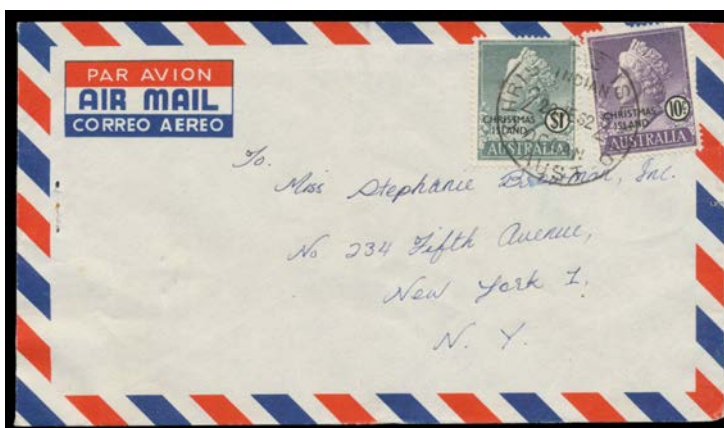 PAR AVION
AIR MAIL
CORREO AEREO
CHRISTMAS ISLAND $1
AUSTRALIA
CHRISTMAS ISLAND 10c
AUSTRALIA
INDIAN
To.
Miss Stephanie Bowman, Inc.
No 234 Fifth Avenue,
New York 1.
N. Y.